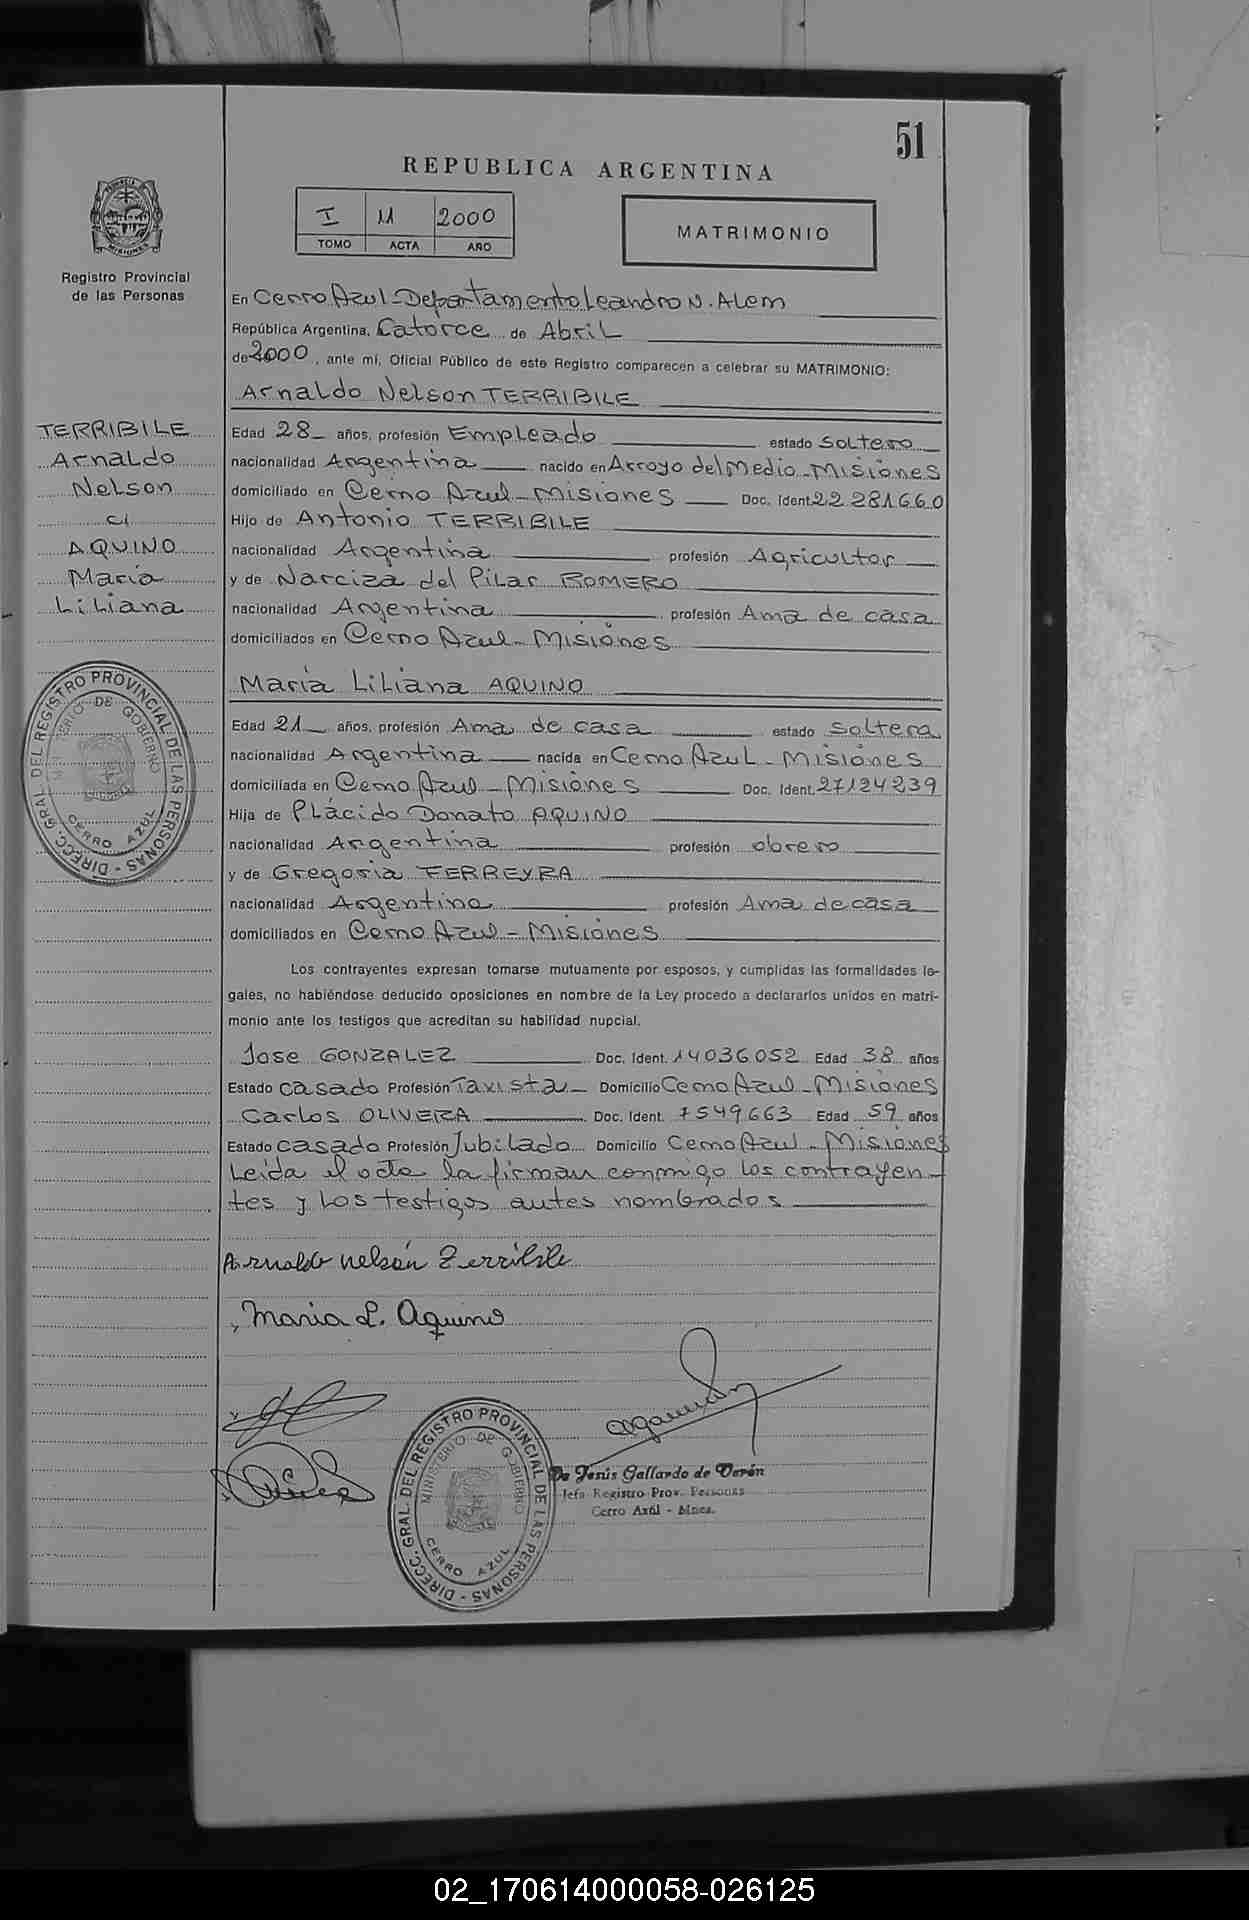 51
REPUBLICA ARGENTINA
I 11 2000
TOMO ACTA AÑO
MATRIMONIO
Registro Provincial
de las Personas
En Cerro Azul - Departamento Leandro N. Alem
República Argentina, Catorce de Abril
de 2000, ante mí, Oficial Público de este Registro comparecen a celebrar su MATRIMONIO:
Arnaldo Nelson TERRIBILE
TERRIBILE
Arnaldo
Nelson
c/
AQUINO
María
Liliana
Edad 28 años, profesión Empleado estado soltero
nacionalidad Argentina nacido en Arroyo del Medio - Misiones
domiciliado en Cerro Azul - Misiones Doc. Ident. 22281660
Hijo de Antonio TERRIBILE
nacionalidad Argentina profesión Agricultor
y de Narciza del Pilar ROMERO
nacionalidad Argentina profesión Ama de casa
domiciliados en Cerro Azul - Misiones
María Liliana AQUINO
Edad 21 años, profesión Ama de casa estado soltera
nacionalidad Argentina nacida en Cerro Azul - Misiones
domiciliada en Cerro Azul - Misiones Doc. Ident. 27124239
Hija de Plácido Donato AQUINO
nacionalidad Argentina profesión obrero
y de Gregoria FERREYRA
nacionalidad Argentina profesión Ama de casa
domiciliados en Cerro Azul - Misiones
Los contrayentes expresan tomarse mutuamente por esposos, y cumplidas las formalidades le-
gales, no habiéndose deducido oposiciones en nombre de la Ley procedo a declararlos unidos en matri-
monio ante los testigos que acreditan su habilidad nupcial.
Jose GONZALEZ Doc. Ident. 14036052 Edad 38 años
Estado casado Profesión Taxista - Domicilio Cerro Azul - Misiones
Carlos OLIVERA Doc. Ident. 7549663 Edad 59 años
Estado casado Profesión Jubilado Domicilio Cerro Azul - Misiones
Leida el acta la firman conmigo los contrayen-
tes y los testigos antes nombrados
Arnaldo Nelson Terribile
Maria L. Aquino
DIRECC. GRAL. DEL REGISTRO PROVINCIAL DE LAS PERSONAS
MINISTERIO DE GOBIERNO
CERRO AZUL
DIRECC. GRAL. DEL REGISTRO PROVINCIAL DE LAS PERSONAS
MINISTERIO DE GOBIERNO
CERRO AZUL
Jesús Gallardo de Verón
Jefa Registro Prov. Personas
Cerro Azul - Mnes.
02_170614000058-026125